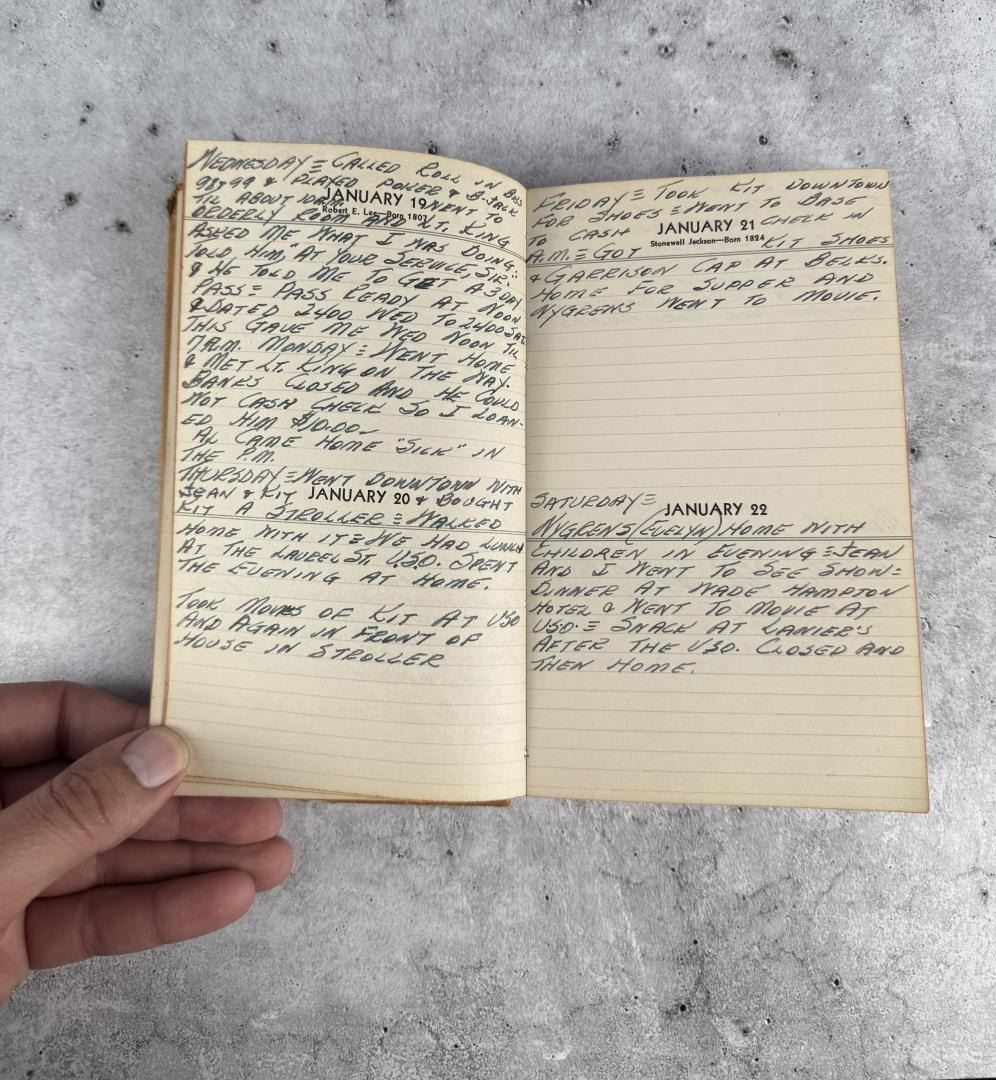 WEDNESDAY = CALLED ROLL IN
98 & 99 & PLAYED POLLER & B-JACK
JANUARY 19
TIL ABOUT 10AM. WENT TO
Robert E. Lee—Born 1807
ORDERLY ROOM AND LT. KING
ASKED ME WHAT I WAS DOING.
TOLD HIM "AT YOUR SERVICE, SIR."
& HE TOLD ME TO GET A 3 DAY
PASS = PASS READY AT NOON
& DATED 2400 WED TO 2400 SAT.
THIS GAVE ME WED NOON TIL
7A.M. MONDAY = WENT HOME
& MET LT. KING ON THE WAY.
BANKS CLOSED AND HE COULD
NOT CASH CHECK SO I LOAN-
ED HIM $10.00
AL CAME HOME "SICK" IN
THE P.M.
THURSDAY = WENT DOWNTOWN WITH
JEAN & KIT JANUARY 20 & BOUGHT
KIT A STROLLER = WALKED
HOME WITH IT = WE HAD LUNCH
AT THE LAUREL ST. USO. SPENT
THE EVENING AT HOME.
TOOK MOVIES OF KIT AT USO
AND AGAIN IN FRONT OF
HOUSE IN STROLLER
FRIDAY = TOOK KIT DOWNTOWN
FOR SHOES = WENT TO BASE
JANUARY 21
TO CASH CHECK IN
Stonewall Jackson—Born 1824
A.M. = GOT KIT SHOES
& GARRISON CAP AT BELKS.
HOME FOR SUPPER AND
NYGRENS WENT TO MOVIE.
SATURDAY =
JANUARY 22
NYGRENS (EVELYN) HOME WITH
CHILDREN IN EVENING = JEAN
AND I WENT TO SEE SHOW =
DINNER AT WADE HAMPTON
HOTEL & WENT TO MOVIE AT
USO. = SNACK AT LANIER'S
AFTER THE USO. CLOSED AND
THEN HOME.